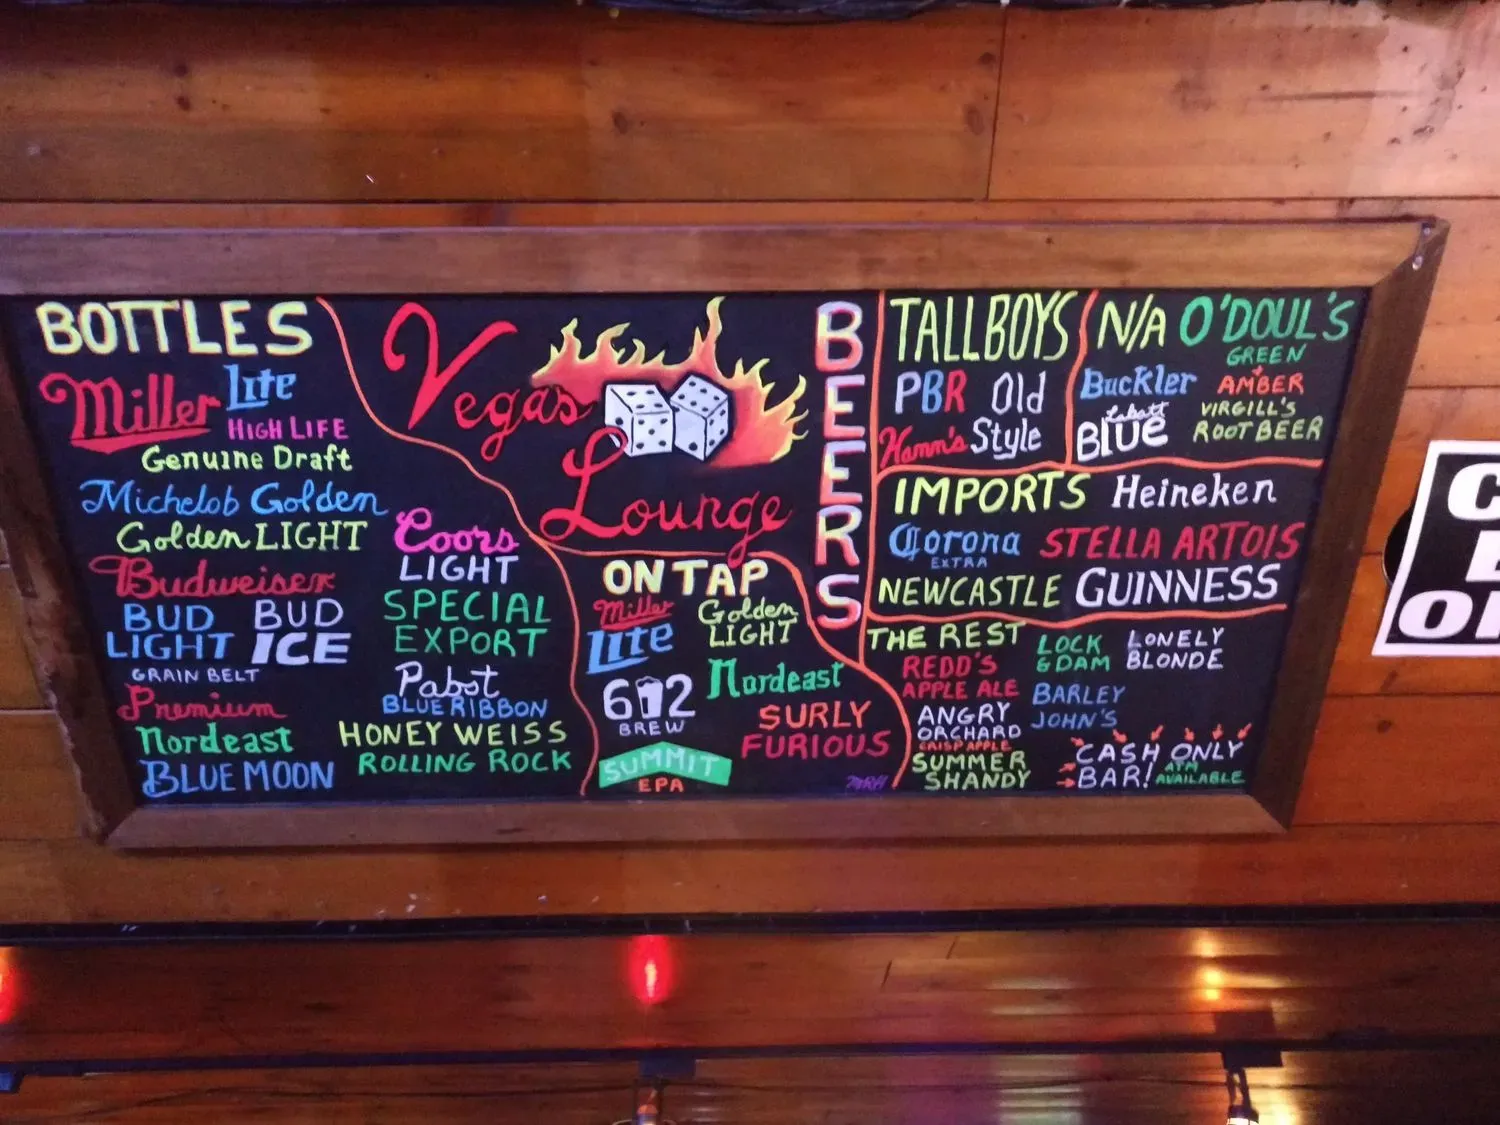 BOTTLES
Miller Lite
HIGH LIFE
Genuine Draft
Michelob Golden
Golden LIGHT
Budweiser
BUD LIGHT
BUD ICE
GRAIN BELT
Premium
Nordeast
BLUE MOON
Coors
LIGHT
SPECIAL
EXPORT
Pabst
BLUE RIBBON
HONEY WEISS
ROLLING ROCK
Vegas
Lounge
BEERS
ON TAP
Miller
Lite
Golden
LIGHT
612
BREW
Nordeast
SUMMIT
EPA
SURLY
FURIOUS
MRH
TALLBOYS
PBR
Old
Style
Hamm's
N/A O'DOUL'S
GREEN
+
AMBER
Buckler
Labatt
BLUE
VIRGILL'S
ROOT BEER
IMPORTS Heineken
Corona
EXTRA
STELLA ARTOIS
NEWCASTLE GUINNESS
THE REST
REDD'S
APPLE ALE
ANGRY
ORCHARD
CRISP APPLE
SUMMER
SHANDY
LOCK
& DAM
LONELY
BLONDE
BARLEY
JOHN'S
CASH ONLY
BAR!
ATM
AVAILABLE